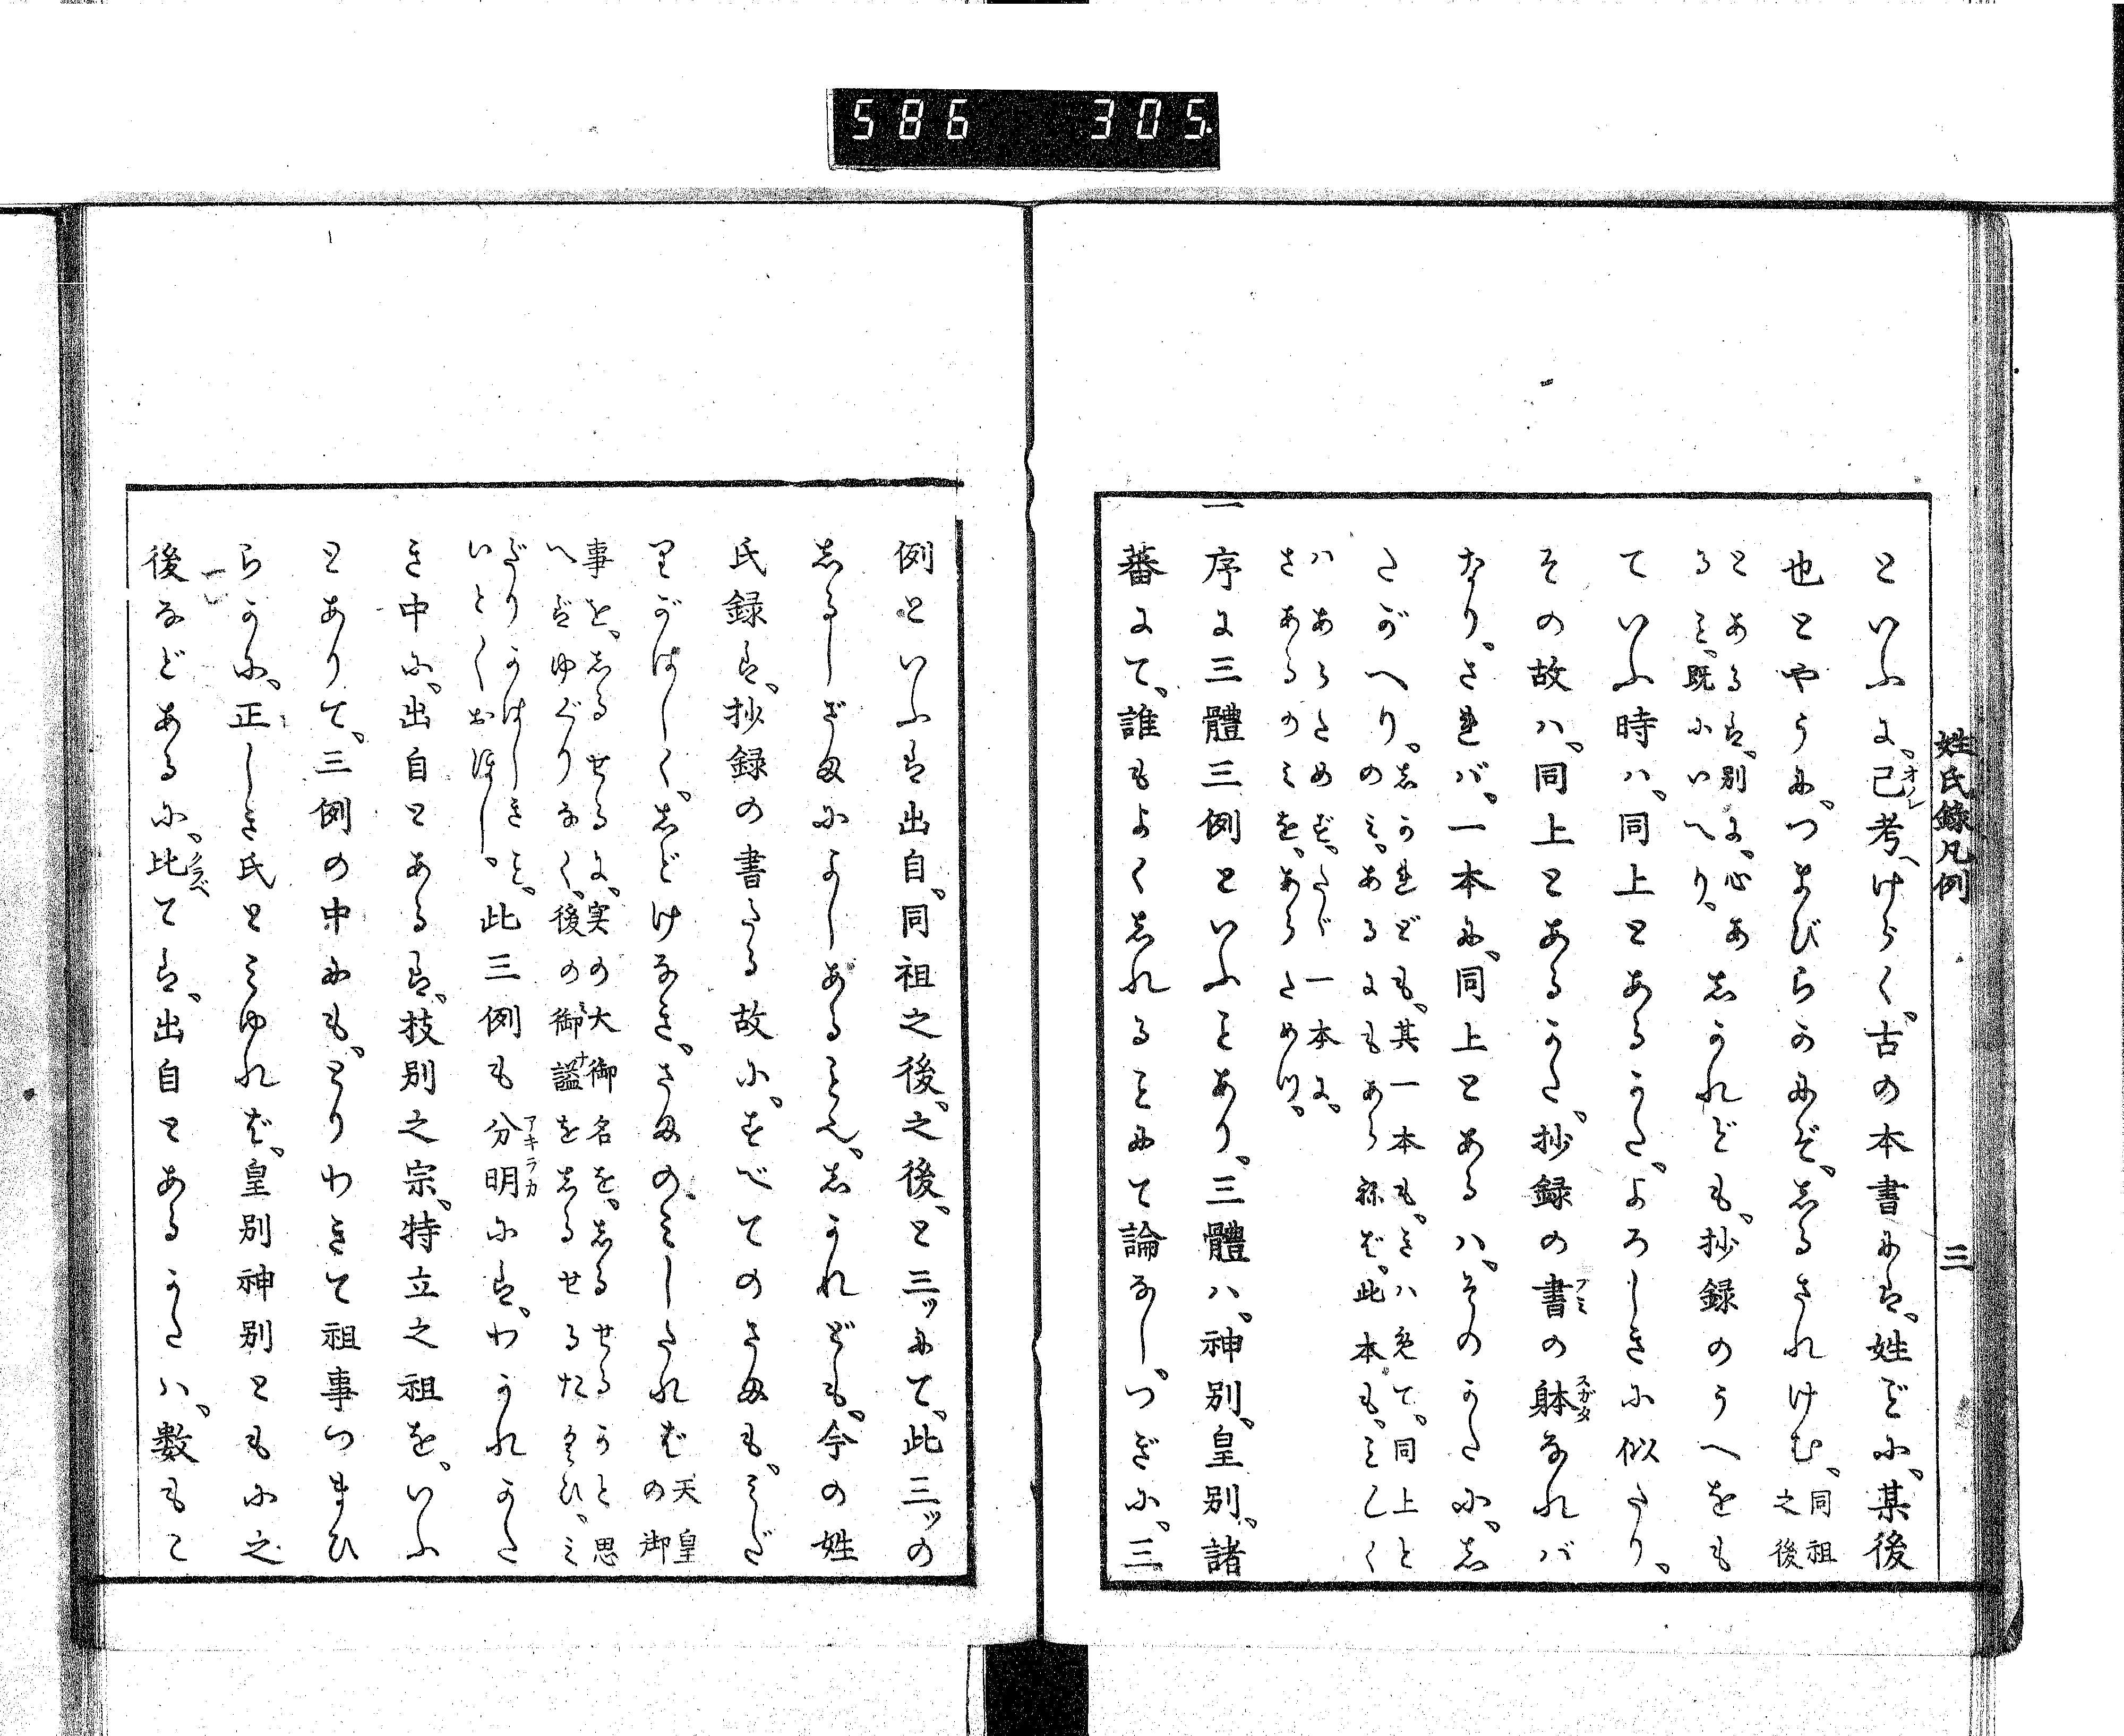 586 305
姓氏録凡例 三
といふに、己考へけらく、古の本書には、姓どに、某後
也とやうに、つまびらかにぞ、しるされけむ、同祖之後
とあるは、別に、心あるミ、既にいへり、しかれども、抄録のうへをも
ていふ時ハ、同上とあるかた、よろしきに似たり、
その故ハ、同上とあるかた、抄録の書の躰なれバ
なり、されバ、一本に、同上とあるハ、そのかたに、し
たがへり、しかれども、其一本も、きハめて、同上と
のミ、あるにもあらねば、此本も、ミしく
ハあらためず、たゞ一本に、
さあるのミを、あらためつ、
一序に三體三例といふことあり、三體ハ、神別、皇別、諸
蕃にて、誰もよくしれることにて論なし、つぎに、三
例といふは出自、同祖之後、之後、と三ツにて、此三ツの
しるしざまによしあることぞ、しかれども、今の姓
氏録は、抄録の書たる故に、すべてのさまも、ミだ
りがはしく、しどけなき、さまの、ミしたれば 天皇の御
事を、しるせるに、実の大御名を、しるせるかと思
へばゆくりなく、後の御謚をしるせるたぐひ、ミ
だりかはしきミ、
いとくおほし、此三例も分明には、わかれかた
き中に、出自とあるは、技別之宗、特立之祖を、いふ
とありて、三例の中にも、とりわきて祖事つまひ
らかに、正しき氏とミゆれば、皇別神別ともに之
後などあるに、比ては、出自とあるかたハ、数もこ